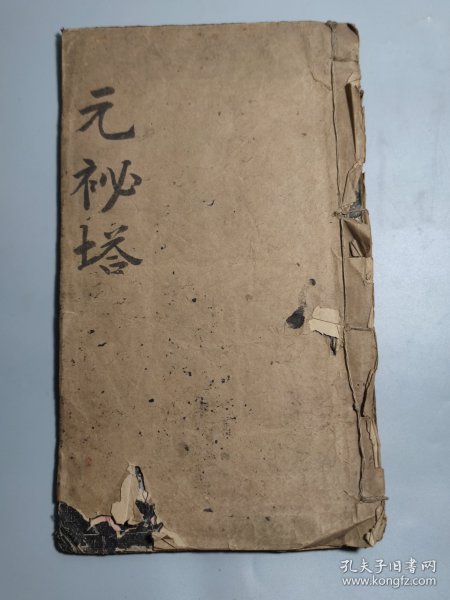 元祕塔
孔夫子旧书网
www.kongfz.com